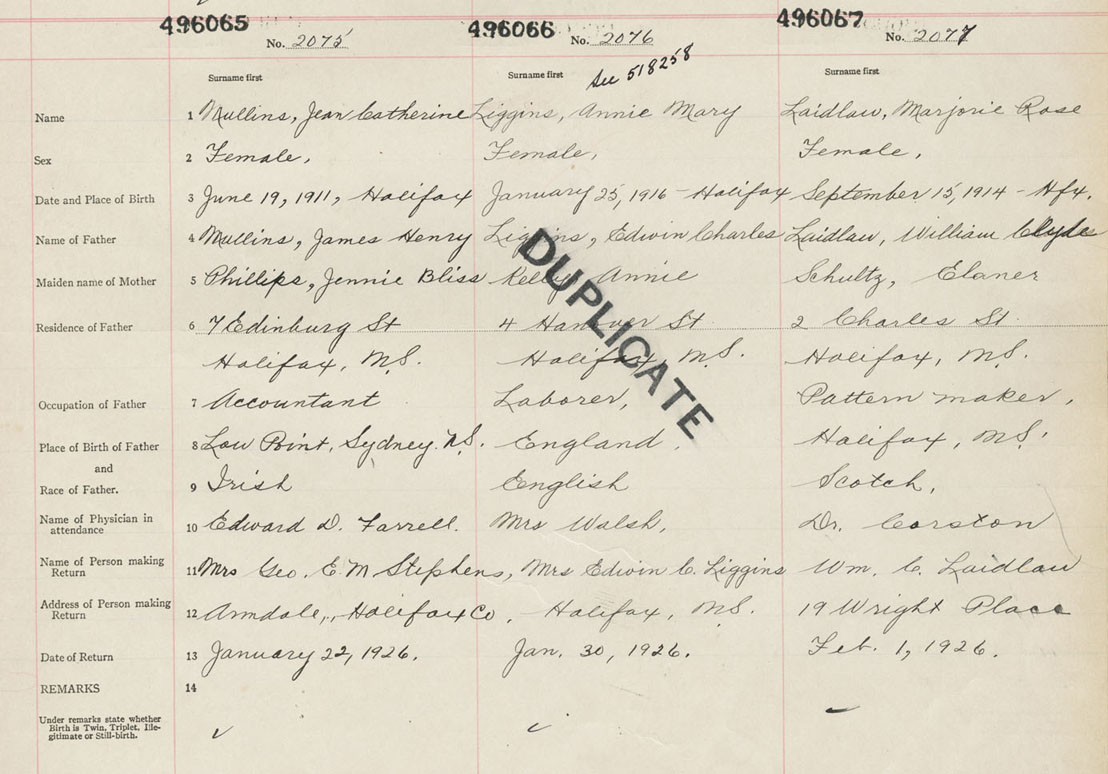 496065 496066 496067
No. 2075 No. 2076 No. 2077
See 518258
Surname first Surname first Surname first
Name 1 Mullins, Jean Catherine Liggins, Annie Mary Laidlaw, Marjorie Rose
Sex 2 Female, Female, Female,
Date and Place of Birth 3 June 19, 1911, Halifax January 25, 1916 - Halifax September 15, 1914 - Hfx.
Name of Father 4 Mullins, James Henry Liggins, Edwin Charles Laidlaw, William Clyde
DUPLICATE
Maiden name of Mother 5 Phillips, Jennie Bliss Kelly, Annie Schultz, Elaner
Residence of Father 6 7 Edinburg St 4 Hanover St 2 Charles St
Halifax, N.S. Halifax, N.S. Halifax, N.S.
Occupation of Father 7 Accountant Laborer, Pattern maker,
Place of Birth of Father 8 Low Point, Sydney. N.S. England. Halifax, N.S.
and
Race of Father. 9 Irish English Scotch,
Name of Physician in attendance 10 Edward D. Farrell. Mrs Walsh, Dr. Corston
Name of Person making Return 11 Mrs Geo. E. M Stephens, Mrs Edwin C. Liggins Wm. C. Laidlaw
Address of Person making Return 12 Armdale, Halifax Co. Halifax, N.S. 19 Wright Place
Date of Return 13 January 22, 1926. Jan. 30, 1926. Feb. 1, 1926.
REMARKS 14
Under remarks state whether
Birth is Twin, Triplet, Ille-
gitimate or Still-birth.